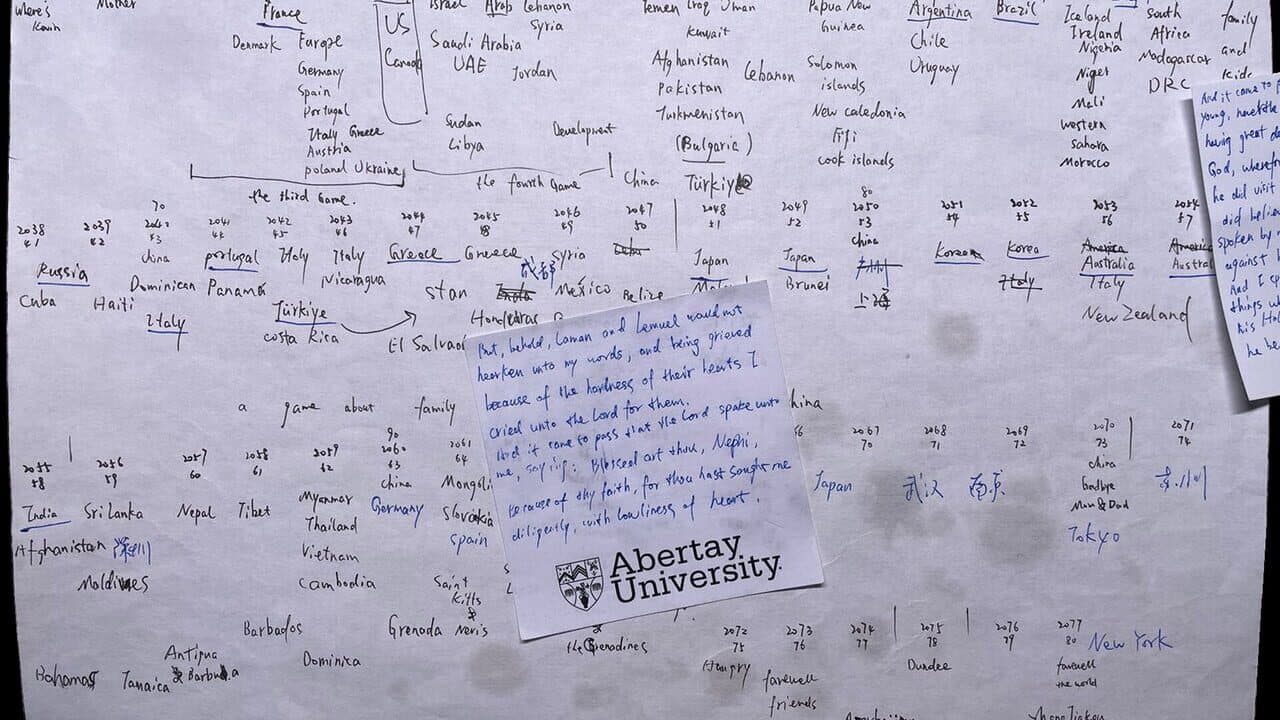 where's Mother France Israel Arab Lebanon Yemen Iraq Oman Papua New Argentina Brazil Iceland South family
Kevin US Syria Guinea Ireland Africa and
Denmark Europe Canada Saudi Arabia Kuwait Chile Nigeria Madagascar kids
Germany UAE Jordan Afghanistan Lebanon Solomon Uruguay Niger DRC
Spain Pakistan islands Mali
Portugal Sudan Development Turkmenistan New Caledonia western
Italy Greece Libya (Bulgaria) Fiji sahara
Austria cook islands Morocco
poland Ukraine
the third Game. the fourth Game China Türkiye
70 80
2038 2039 2041 2042 2043 2044 2045 2046 2047 2048 2049 2050 2051 2052 2053 2054
41 42 43 44 45 46 47 48 49 50 51 52 53 54 55 56 57
Russia China portugal Italy Italy Greece Greece Syria Japan Japan China Korea Korea America
Cuba Haiti Dominican Panama Nicaragua stan 成都 México Belize Brunei Italy Australia
Italy Türkiye Honduras 上海 Italy
costa Rica El Salvador New Zealand
a game about family China
90
2055 2056 2057 2058 2059 2060 2061 2067 2068 2069 2070 2071
58 59 60 61 62 63 64 70 71 72 73 74
India Sri Lanka Nepal Tibet Myanmar China Mongoli Japan 武汉 南京 China
Afghanistan 深圳 Thailand Germany Slovakia Goodbye
Moldives Vietnam Spain Mom & Dad
Cambodia Saint Tokyo
Kitts
&
Barbados Grenada Nevis
Antigua Dominica the Grenadines
Bahamas Jamaica & Barbuda
2072 2073 2074 2075 2076 2077
75 76 77 78 79 80 New York
Hungry farewell Dundee farewell
friends the world
But, behold, Laman and Lemuel would not
hearken unto my words; and being grieved
because of the hardness of their hearts I
cried unto the Lord for them.
And it came to pass that the Lord spake unto
me, saying: Blessed art thou, Nephi,
because of thy faith, for thou hast sought me
diligently, with lowliness of heart.
Abertay
University
And it came to
young,
having great
God,
he did visit
did
spoken by
against
And I
things
his
he